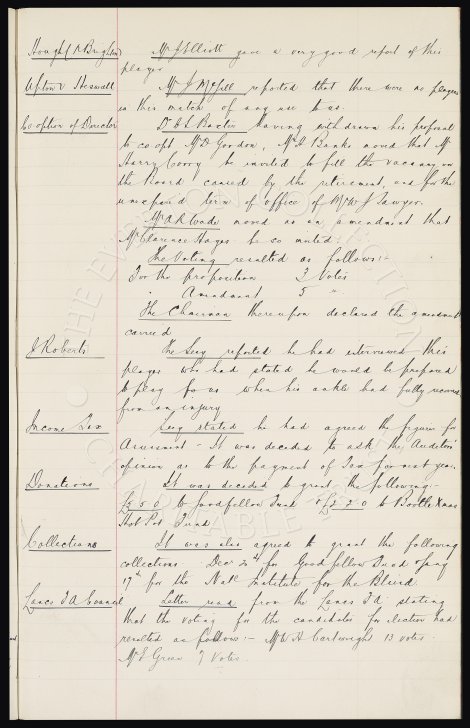 Hough (N Brighton) Mr J Elliott gave a very good report of this
player
Upton v Heswall Mr J McGill reported that there were no players
in this match of any use to us.
Co option of Director Dr C S Baxter having withdrawn his proposal
to co opt Mr D Gordon, Mr Banks moved that Mr
Harry Corry be invited to fill the vacancy on
the Board caused by the retirement, and for the
unexpired term of office of Mr W J Sawyer.
Mr A R Wade moved as an amendment that
Mr Clarence Hayes be co opted.
The Voting resulted as follows:-
For the proposition 3 Votes
" Amendment 5 "
The Chairman thereupon declared the amendment
carried
J Roberts The Secy reported he had interviewed this
player who had stated he would be prepared
to play for us when his ankle had fully recovered
from an injury
Income Tax Secy stated he had agreed the figures for
Assessment - It was decided to ask the Auditors
opinion as to the payment of Tax for next year.
Donations It was decided to grant the following:-
£5 5 0 to Goodfellow Fund & £2 2 0 to Bootle Xmas
Hot Pot Fund
Collections It was also agreed to grant the following
collections Dec for Goodfellow Fund & Jany
17th for the Natl Institute for the Blind
Lancs F A Council Letter read from the Lancs F A stating
that the voting for the candidates for election had
resulted as follows:- Mr W A Cartwright 13 votes
Mr E Green 7 Votes.
THE EVERTON COLLECTION
CHARITABLE